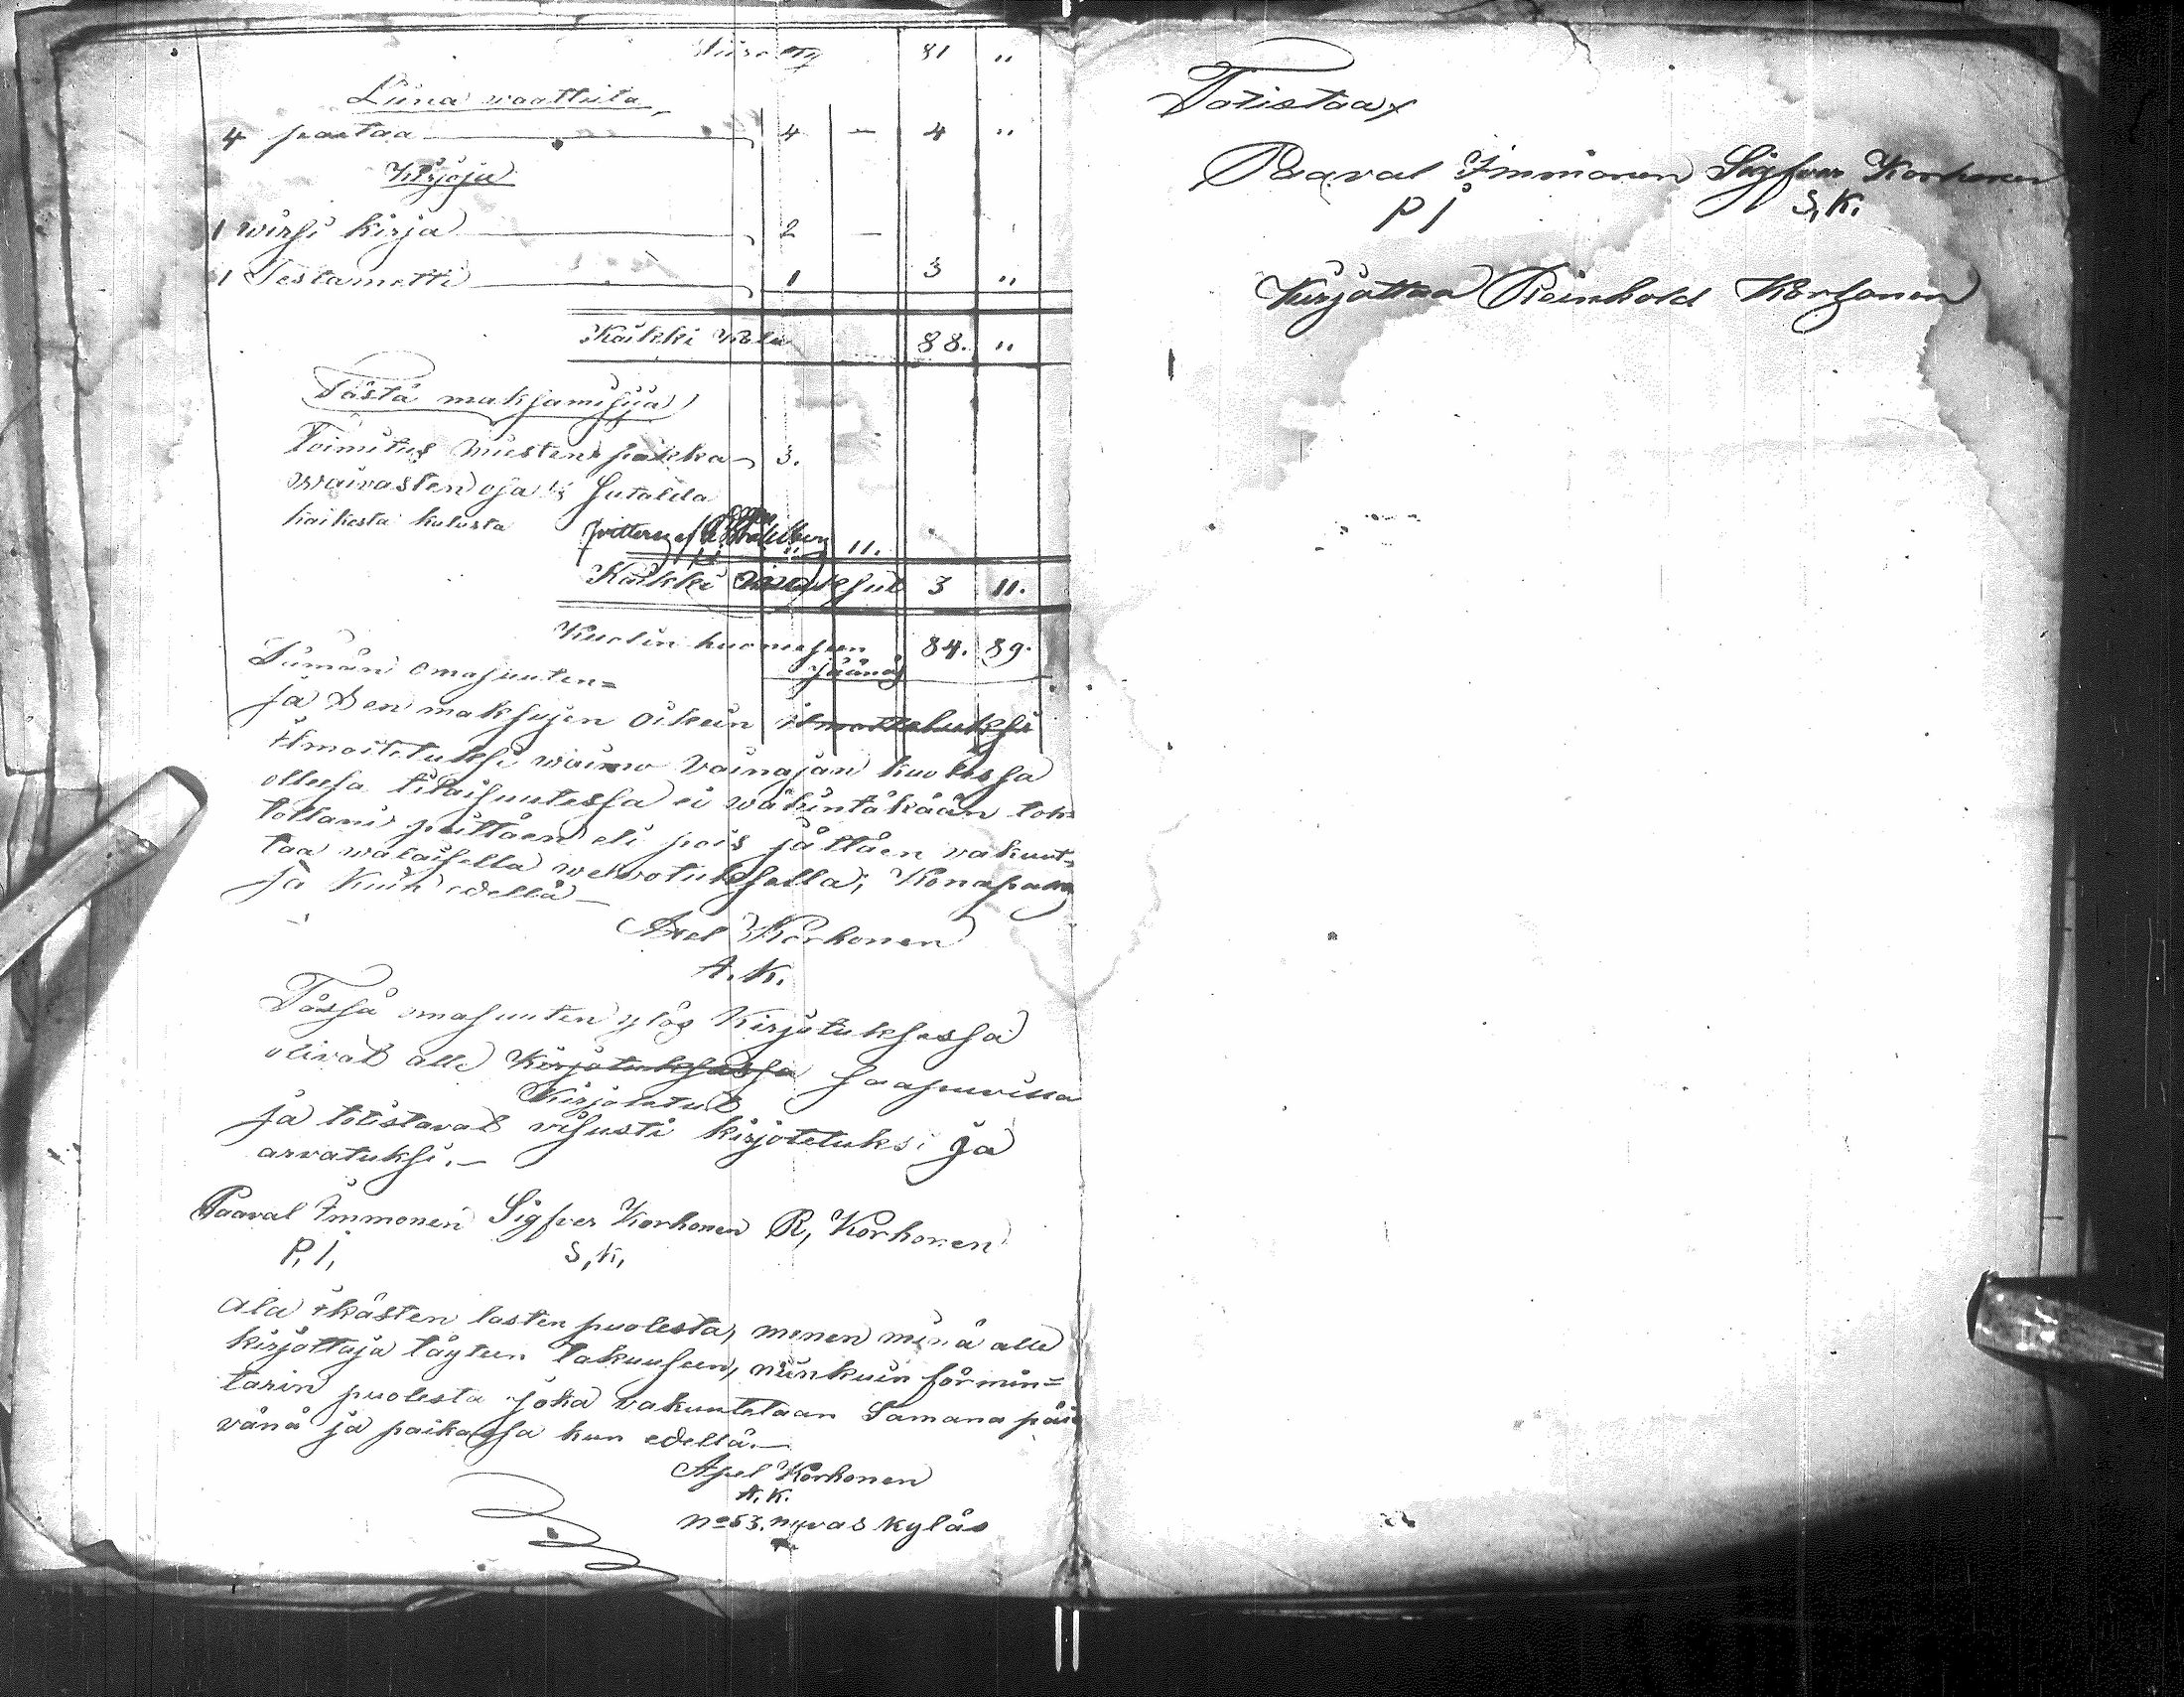 Siirettÿ 81 "
Liina waatteita
4 paitaa 4 — 4 "
Kirjoja
1 wirsi kirja 2 —
1 Testametti 1 3 "
Kaikki Kalu 88. "
Tästä maksamisija
Toimitus miesten palkka 3.
waivasten oja ⅛ Sutalda
kaikesta kalusta
11.
Kaikki maksut 3 11.
Kuolin huonehen 84. 89.
jäänös
Tämän omasuuten=
sa Den maksujen oikein ilmottetuksi
ilmoitetuksi waimo vainajan kuolessa
ollessa tilaisuutessa ei wähintäkään
pättäen eli pois jättäen vakuut=
taa walaisella welvotuksella;
ja kuin edellä —
Axel Korhonen
A. K.
Tässä omasuuten ylös Kirjotuksessa
olivat alle Kirjotuksessa saapuvilla
Kirjotetut
ja totistavat visusti kirjotetuksi ja
arvatuksi. —
Paaval Immonen Sigfver Korhonen R, Korhonen
P, I, S, K,
Ala ikästen lasten puolesta, menen minä alle
kirjottaja täyteen takuuseen, niinkuin förmin=
tarin puolesta joka vakuutetaan Samana päi
vänä ja paikassa kun edellä. —
Axel Korhonen
A. K.
No 53. kyläs
Totistaa
Paaval Immonen Sigfver Korhonen
P I S, K.
Kirjottaa Reinhold Korhonen